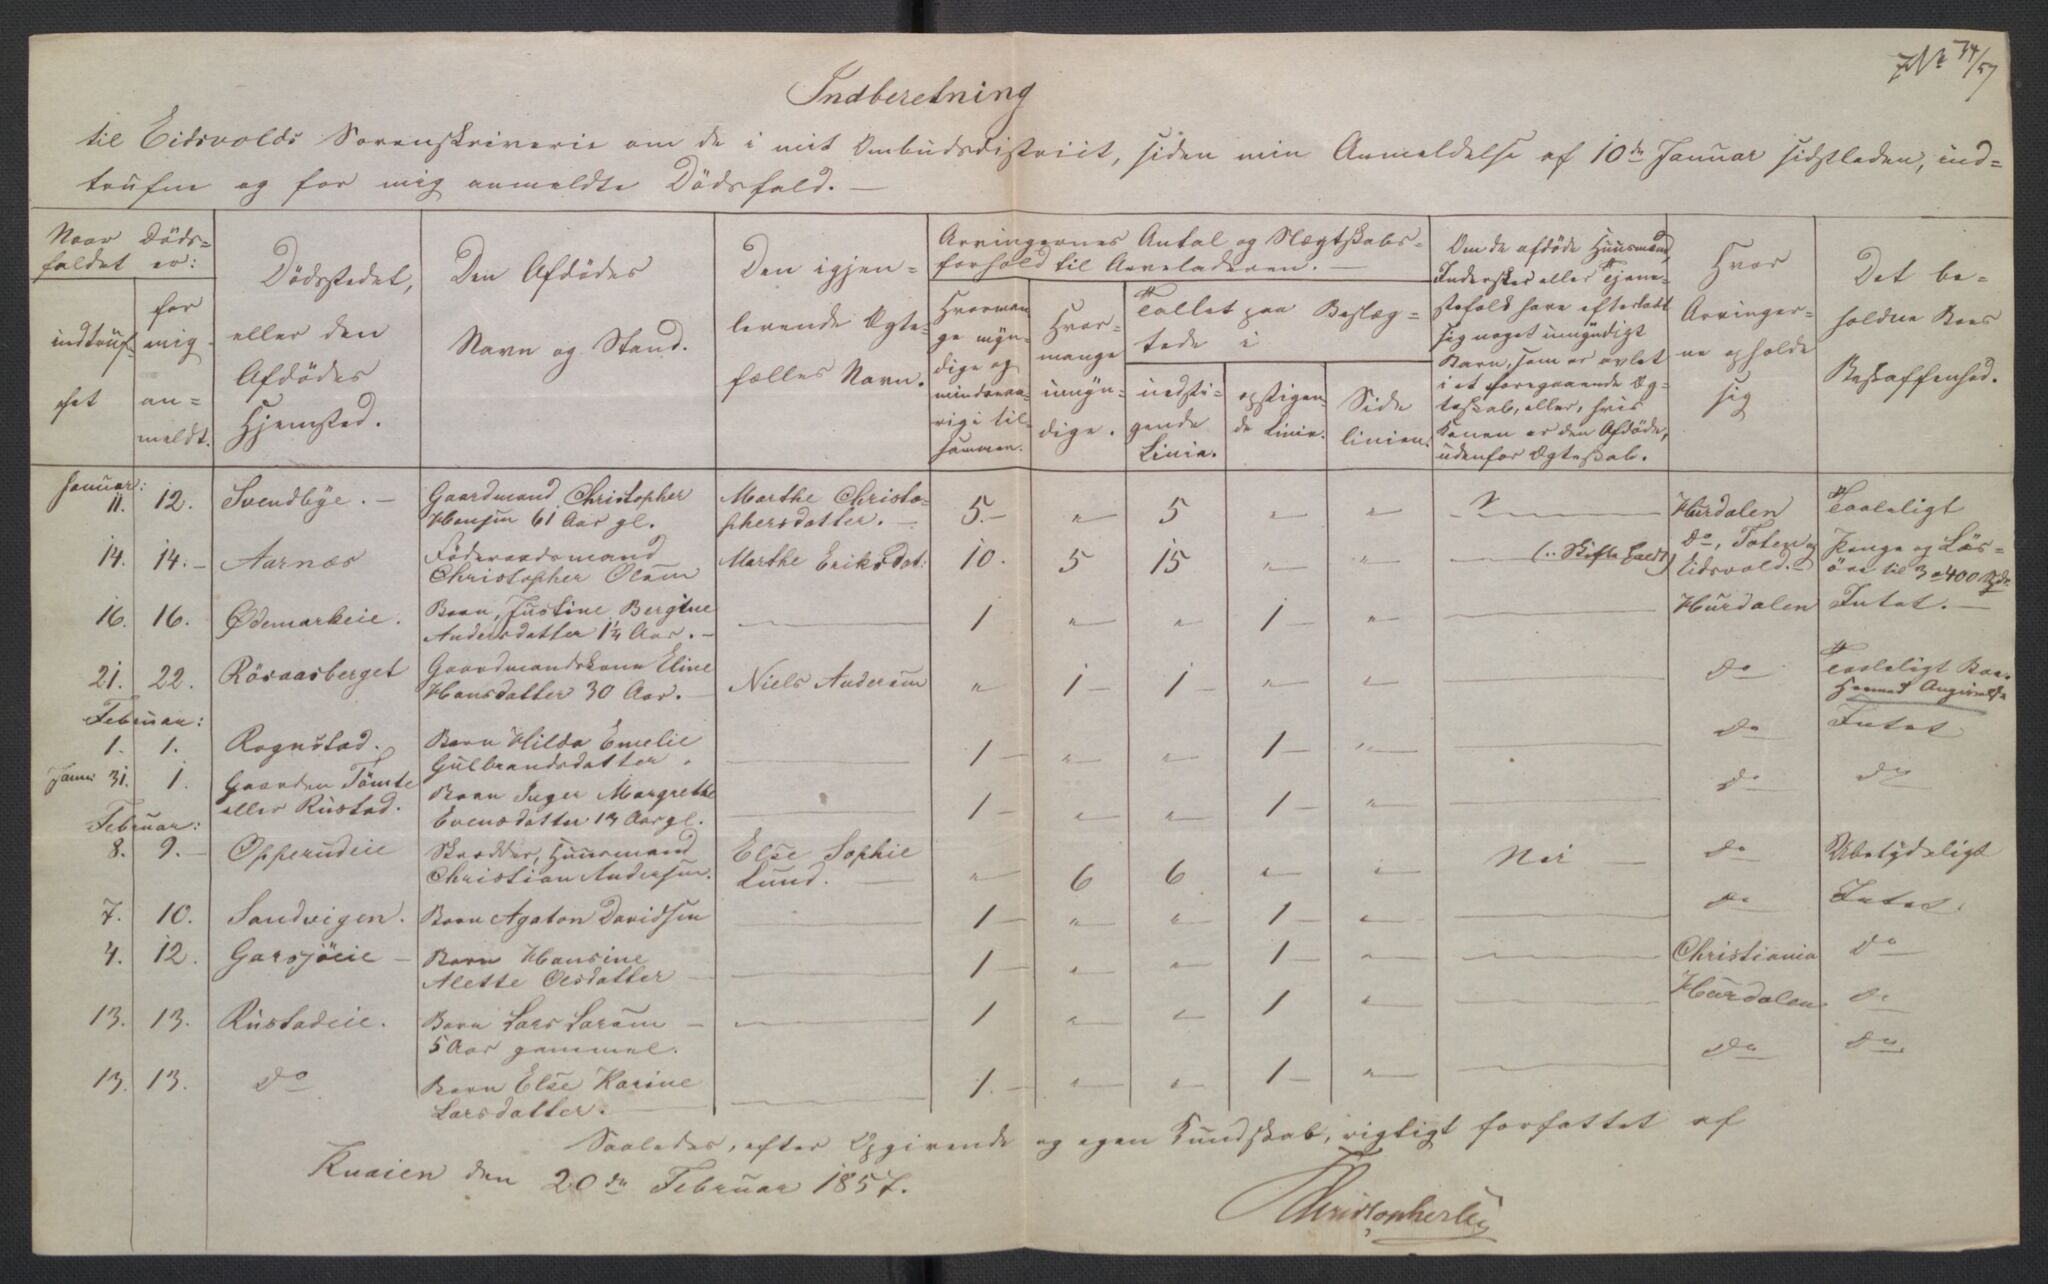 No 74/57
Indberetning
til Eidsvolds Sorenskriverie om de i mit Ombudsdistrikt, siden min Anmeldelse af 10de Januar sidstleden, ind-
trufne og for mig anmeldte Dödsfald. —
Naar Döds-
faldet er:
indtruf-
fet
for
mig
an-
meldt.
Dödsstedet,
eller den
Afdödes
Hjemsted.
Den Afdödes
Navn og Stand.
Den igjen-
levende Ægte-
fælles Navn.
Arvingernes Antal og Slægtskabs-
forhold til Arveladeren. —
Hvorman-
ge myn-
dige og
mindreaa-
rige til-
sammen.
Hvor-
mange
umyn-
dige.
Tallet paa Beslæg-
tede i
nedsti-
gende
Linie.
opstigen-
de Linie.
Side
linien.
Om de afdöde Huusmænd,
Inderster eller Tjene-
stefolk have efterladt
sig noget umyndigt
Barn, som er avlet
i et foregaaende Æg-
teskab, eller, hvis
Konen er den Afdöde,
udenfor Ægteskab.
Hvor
Arvinger-
ne opholde
sig
Det be-
holdne Boes
Beskaffenhed.
Januar:
11. 12. Svendbye. — Gaardmand Christopher Hansen 61 Aar gl. Marthe Christo-
phersdatter. — 5. — " 5 " " " Hurdalen Taaleligt
14. 14. — Aarnæs Föderaadsmand Christopher Olsen Marthe Eriksdat: 10. 5 15 " " — (:Skifte holdt) do, Toten og Eidsvold. — Penge og Lös-
öre til 3 a 400 Spd.
16. 16. Ødemarkeie. Barn, Justine Bergine Andersdatter 1¼ Aar. — 1 " " 1 — " Hurdalen Intet. —
21. 22. Rösaasberget Gaardmandskone Eline Hansdatter 30 Aar. — Niels Andersen " 1 — 1 — " " do Taaleligt Boe.
Februar:
1. 1. Rognstad. Barn Hilda Emelie Gulbrandsdatter. 1 — " " 1 — " do Intet
Janr: 31. 1. Gaarden Tömte eller Rustad. Barn Inger Margrethe Evensdatter 13 Aar gl. 1 — " " 1 — " do do
Februar:
8. 9. — Opperudeie Skrædder, Huusmand Christian Andersen. Else Sophie Lund. — " 6 6 " " Nei — do Ubetydeligt
7. 10. Sandvigen. Barn Agaton Davidsen 1 — " " 1 — " do Intet.
4. 12. Garsjöeie — Barn Hansine Alette Olsdatter — 1 " " 1 " Christiania do
13. 13. Rustadeie. Barn Lars Larsen — 5 Aar gammel. 1 " " 1 " Hurdalen do
13. 13. do Barn Else Karine Larsdatter. — 1. — " " 1 — " do do
Saaledes, efter Opgivende og egen Kundskab, rigtigt forfattet af
Knaien den 20de Februar 1857.
Christophersen